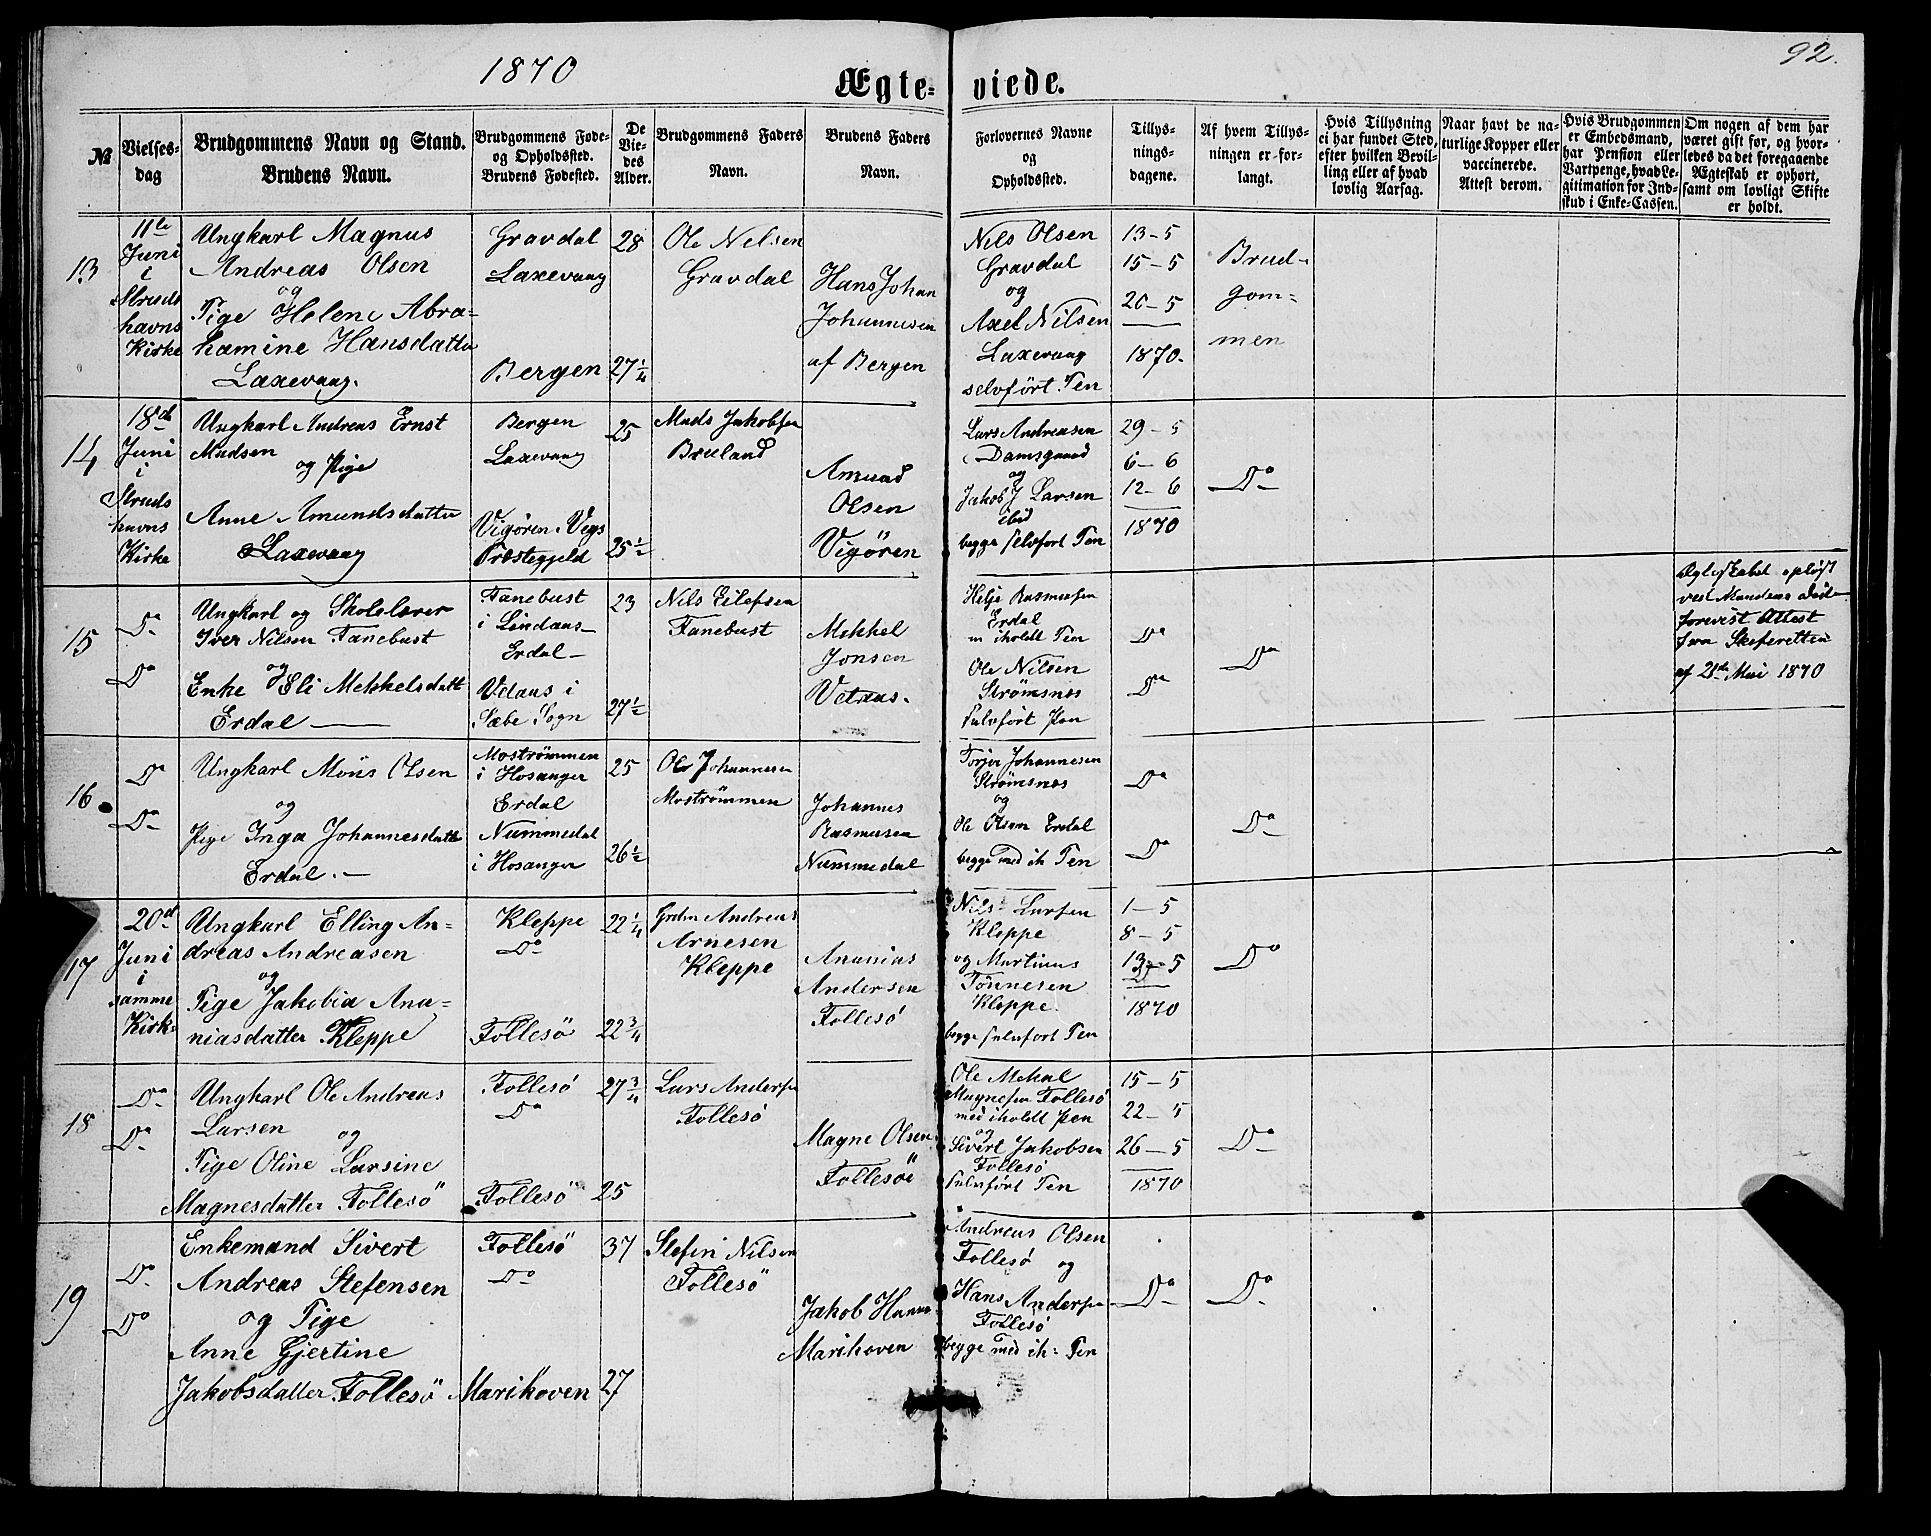 1870
92.
Ægte-viede.
№
Vielses-dag
Brudgommens Navn og Stand.
Brudens Navn.
Brudgommens Føde- og Opholdssted.
Brudens Fødested.
De Vie-des Alder.
Brudgommens Faders Navn.
Brudens Faders Navn.
Forlovernes Navne og Opholdssted.
Tillys-nings-dagene.
Af hvem Tillys-ningen er for-langt.
Hvis Tillysning ei har fundet Sted, efter hvilken Bevil-ling eller af hvad lovlig Aarsag.
Naar havt de na-turlige Kopper eller vaccinerede. Attest derom.
Hvis Brudgommen er Embedsmand, har Pension eller Vartpenge, hvad Le-gitimation for Ind-skud i Enke-Cassen.
Om nogen af dem har været gift før, og hvor-ledes da det foregaaende Ægteskab er ophørt, samt om lovligt Skifte er holdt.
13
11te
Juni
i
Struds
havns
Kirke
Ungkarl Magnus
Andreas Olsen
og
Pige Helene Abra-
hamine Hansdatter
Laxevaag.
Gravdal
Laxevaag
Bergen
28
27 1/4
Ole Nilsen
Gravdal
Hans Johan
Johannesen
af Bergen
Nils Olsen
Gravdal
og
Axel Nilsen
Laxevaag
selvført Pen
13-5
15-5
20-5
1870.
Brud-
gom-
men
14
18de
Juni
i
Struds
havns
Kirke
Ungkarl Andreas Ernst
Madsen
og Pige
Anne Amundsdatter
Laxevaag
Bergen
Laxevaag
Vigøren i Vegs
Præstegjeld
25
25 1/2
Mads Jakobsen
Bruland
Amund
Olsen
Vigøren
Lars Andreasen
Damsgaard
og
Jakob J Larsen
ibid
begge selvført Pen
29-5
6-6
12-6
1870
Do
15
Do
Do
Ungkarl og Skolelærer
Iver Nilsen Fanebust
og
Enke Eli Mekkelsdatt
Erdal
Fanebust
i Lindaas
Erdal
Vdaas i
Sæbe Sogn
23
27 1/2
Nils Eilefsen
Fanebust
Mekkel
Jonsen
Helje Rasmussen
Erdal
m iholdt Pen
Ole Nilsen
Strømsnes
selvført Pen
Do
Do
Do
Ægteskabet opløst
ved Mandens Død
forevist Attest
fra Skifteretten
af 21de Mai 1870
16
Do
Do
Ungkarl Mons Olsen
og
Pige Inga Johannesdatt
Erdal.
Mostrømmen
i Hosanger
Erdal
Nummedal
i Hosanger
25
26 1/2
Ole Johannesen
Mostrømmen
Johannes
Rasmusen
Nummedal
Johannesen
Strømsnes
og
Ole Olsen Erdal
begge med ih Pen
Do
Do
Do
17
20de
Juni
i
samme
Kirke
Ungkarl Elling An-
dreas Andreasen
og
Pige Jakobia Ana-
niasdatter Kleppe
Kleppe
Do
Follesö
22 1/4
22 3/4
Grdm Andreas
Arnesen
Kleppe
Ananias
Andersen
Follesö
Nils Larsen
Kleppe
og Martinus
Tönnesen
Kleppe.
begge selvført Pen
1-5
8-5
5
1870
Do
18
Do
Do
Ungkarl Ole Andreas
Larsen
og
Pige Oline Larsine
Magnesdatter Follesö
Follesö
Do
Follesö
27 3/4
25
Lars Anders
Follesö
Magne Olsen
Follesöe
Ole Mekal
Magnesen Follesö
med iholdt Pen
og
Sivert Jakobsen
Follesö
selvført Pen
15-5
22-5
26-5
1870
Do
19
Do
Do
Enkemand Sivert
Andreas Stefensen
og Pige
Anne Gjertine
Jakobsdatter Follesö
Follesö
Do
Marihoven
37
27
Stefen Nilsen
Follesö
Jakob Hans
Marihoven
Andreas Olsen
Follesö og
Hans Andersen
Follesö
begge med ih: Pen
Do
Do